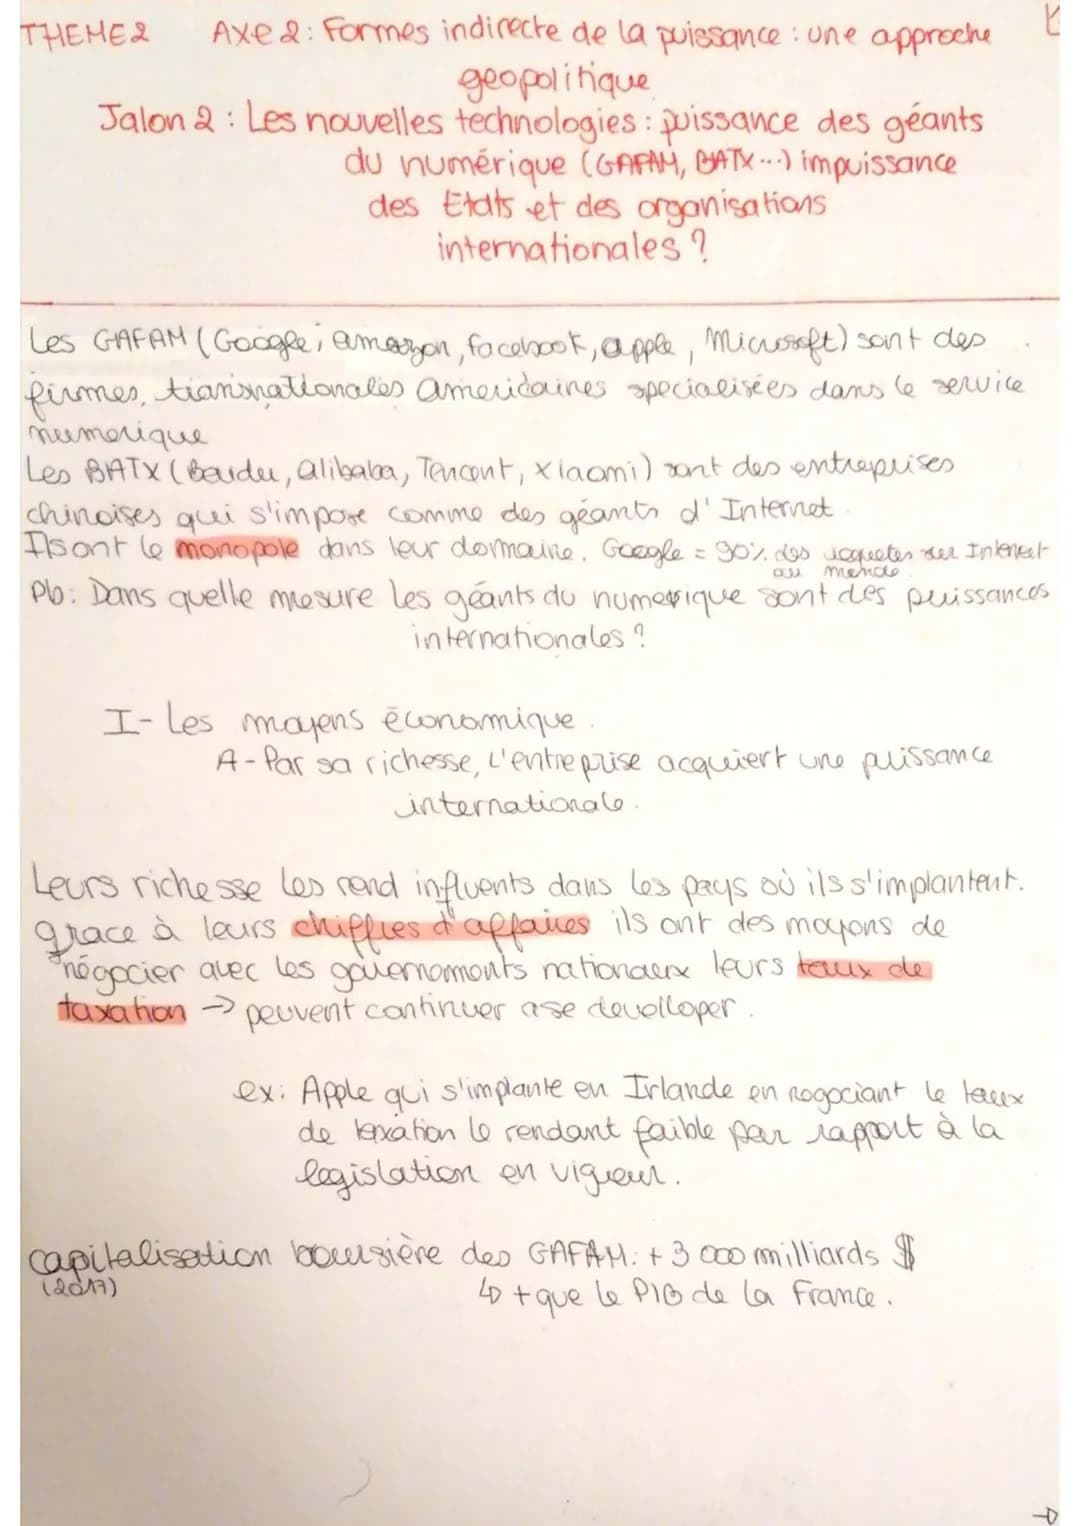 THEME 2 AXe 2 : Formes indirecte de la puissance : une approche
geopolitique
Jalon 2 : Les nouvelles technologies : puissance des géants
du numérique (GAFAM, BATX...) impuissance
des Etats et des organisations
internationales ?
Les GAFAM (Google, amazon, facebook, apple, Microsoft) sont des
firmes transnationales américaines specialisées dans le service
numerique
Les BATX (Baidu, alibaba, Tencent, xiaomi) sont des entreprises
chinoises qui s'impose comme des géants d'Internet.
Ils ont le monopole dans leur domaine. Google = 90% des requetes sur Internet
au monde.
Pb : Dans quelle mesure les géants du numerique sont des puissances
internationales ?
I- Les moyens économique.
A - Par sa richesse, l'entreprise acquiert une puissance
internationale.
Leurs richesse les rend influents dans les pays où ils s'implantent.
grace à leurs chiffres d'affaires ils ont des moyens de
négocier avec les gouvernements nationaux leurs taux de
taxation → peuvent continuer a se develloper.
ex : Apple qui s'implante en Irlande en negociant le taux
de taxation le rendant faible par rapport à la
legislation en vigueur.
capitalisation boursière des GAFAM : + 3 000 milliards $
(2017) ↳ + que le PIB de la France.
→